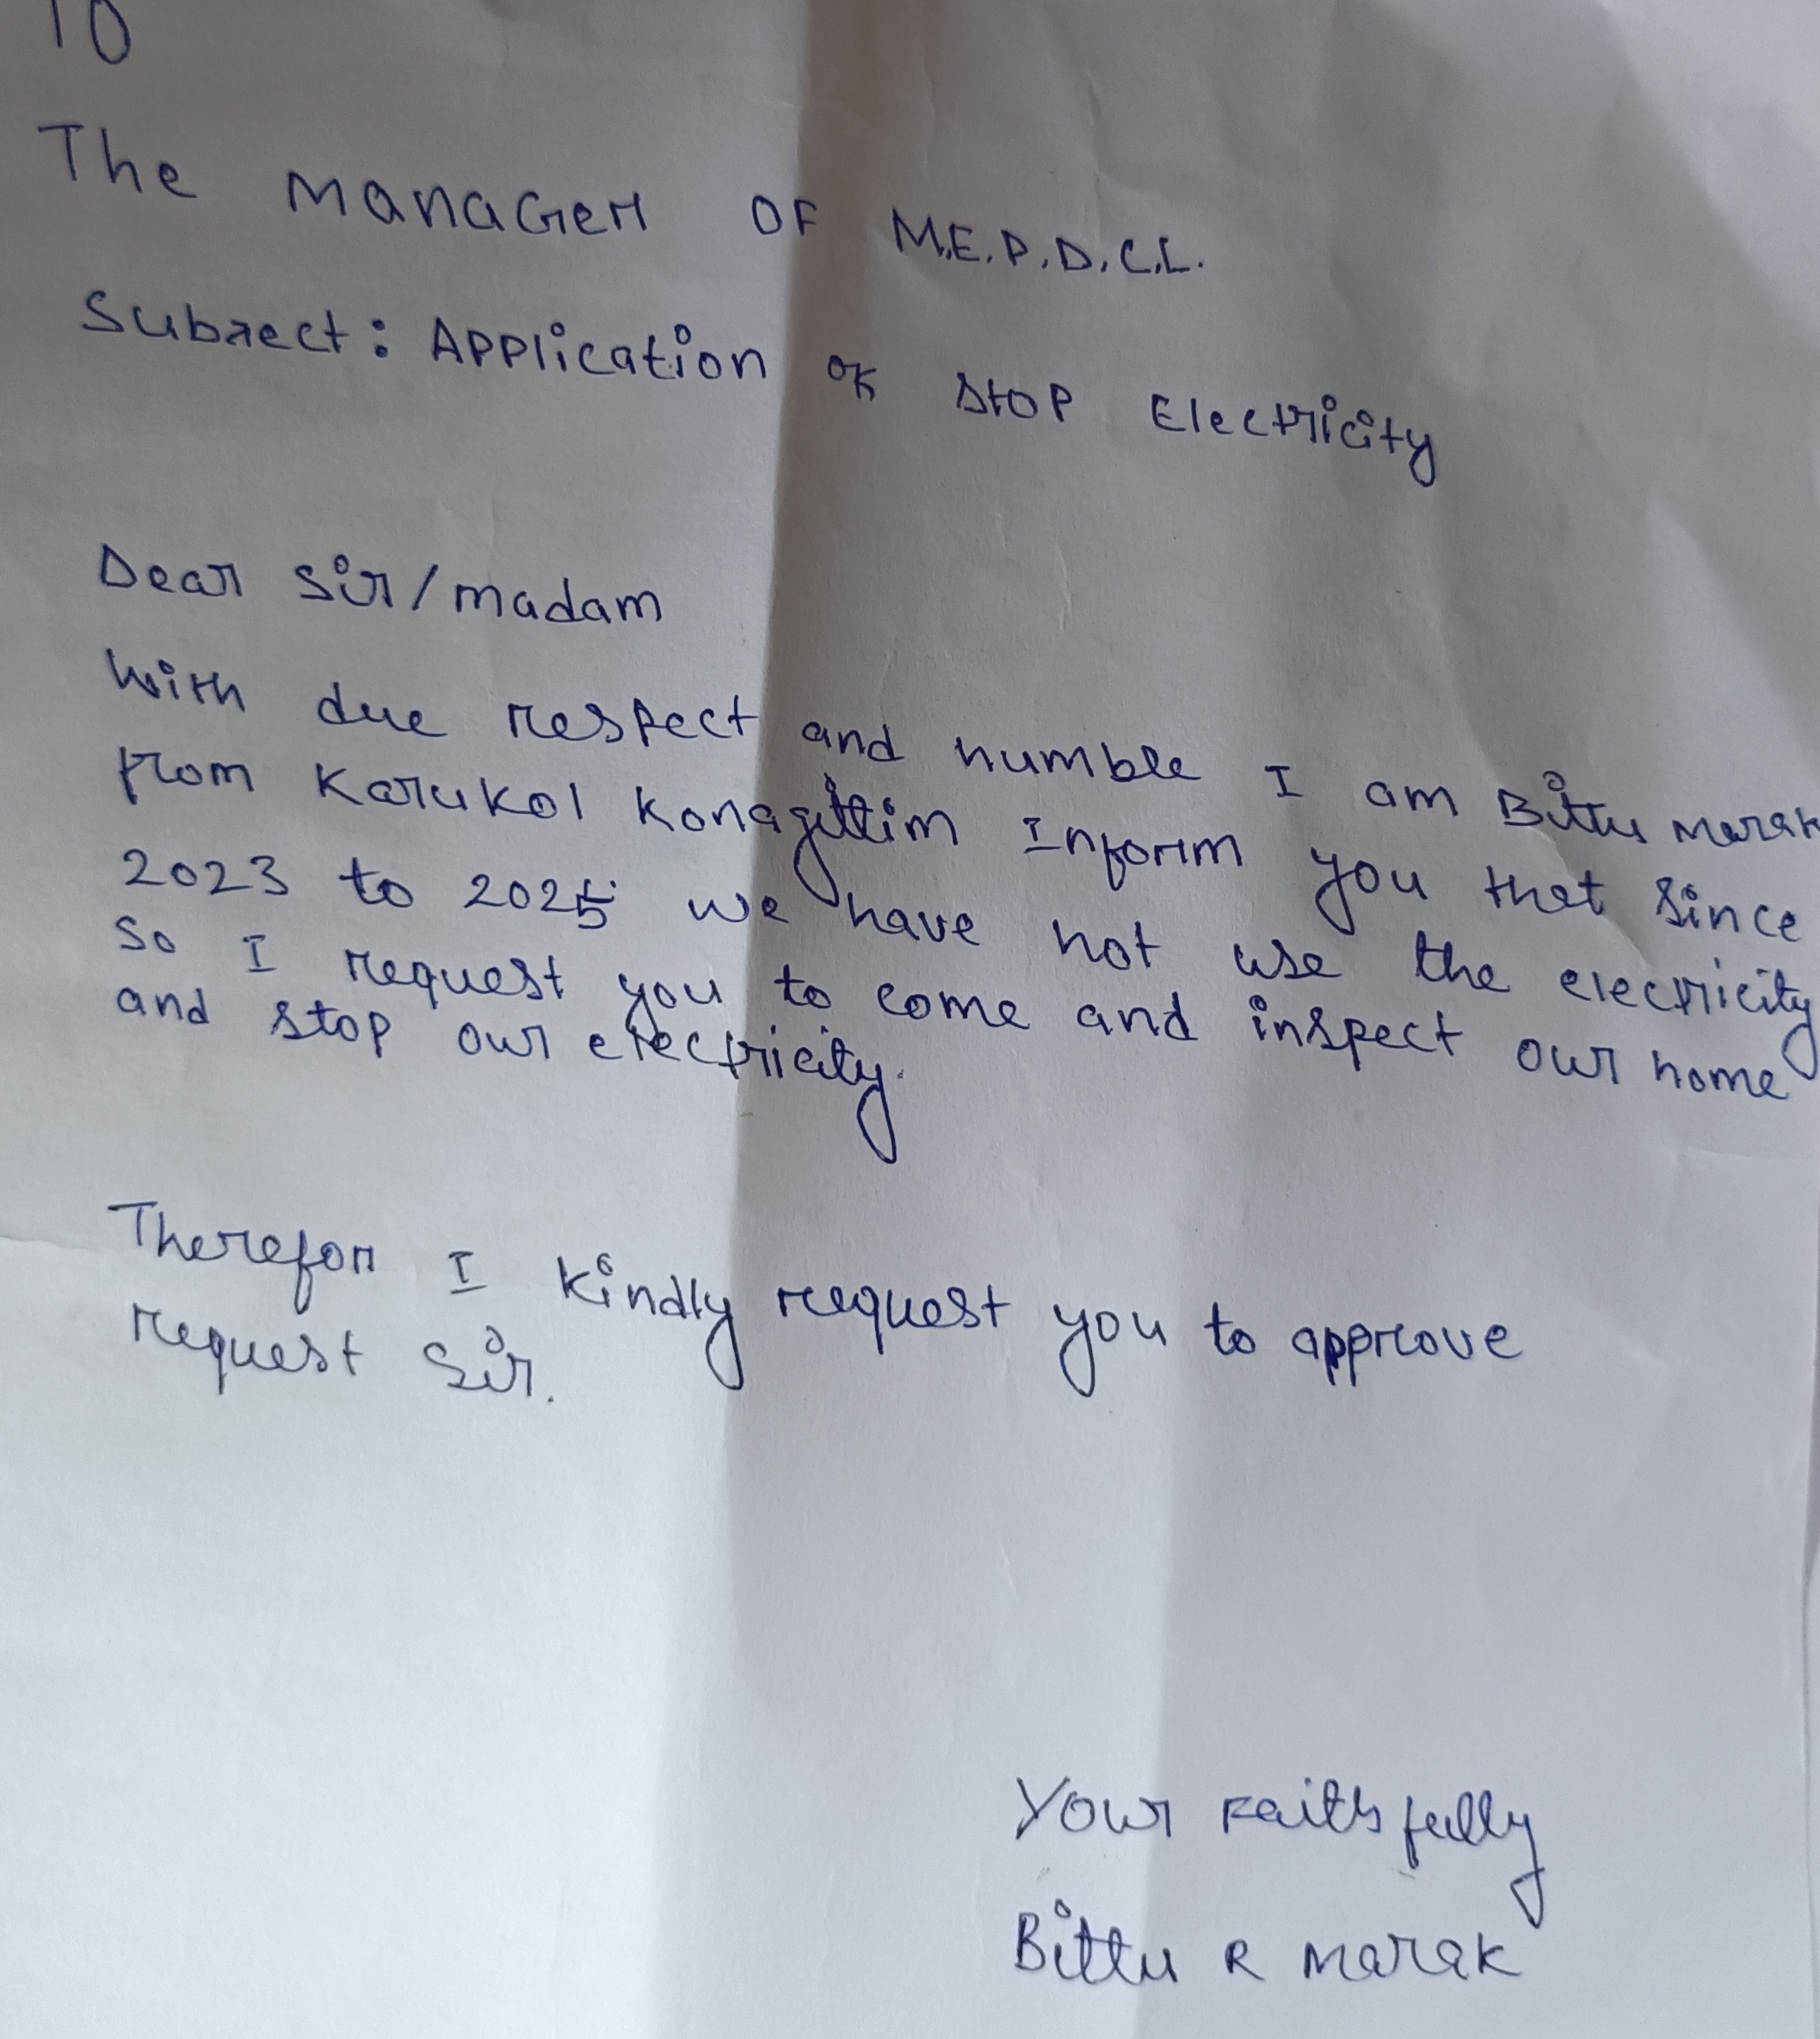 To
The Manager OF M.E.P.D.C.L.
Subject: Application of stop Electricity
Dear Sir/madam
With due respect and humble I am Bittu Marak
from Karukol Konagittim Inform you that since
2023 to 2025 we have not use the electricity
So I request you to come and inspect our home
and stop our electricity.
Therefor I kindly request you to approve
request Sir.
Your Faithfully
Bittu R Marak